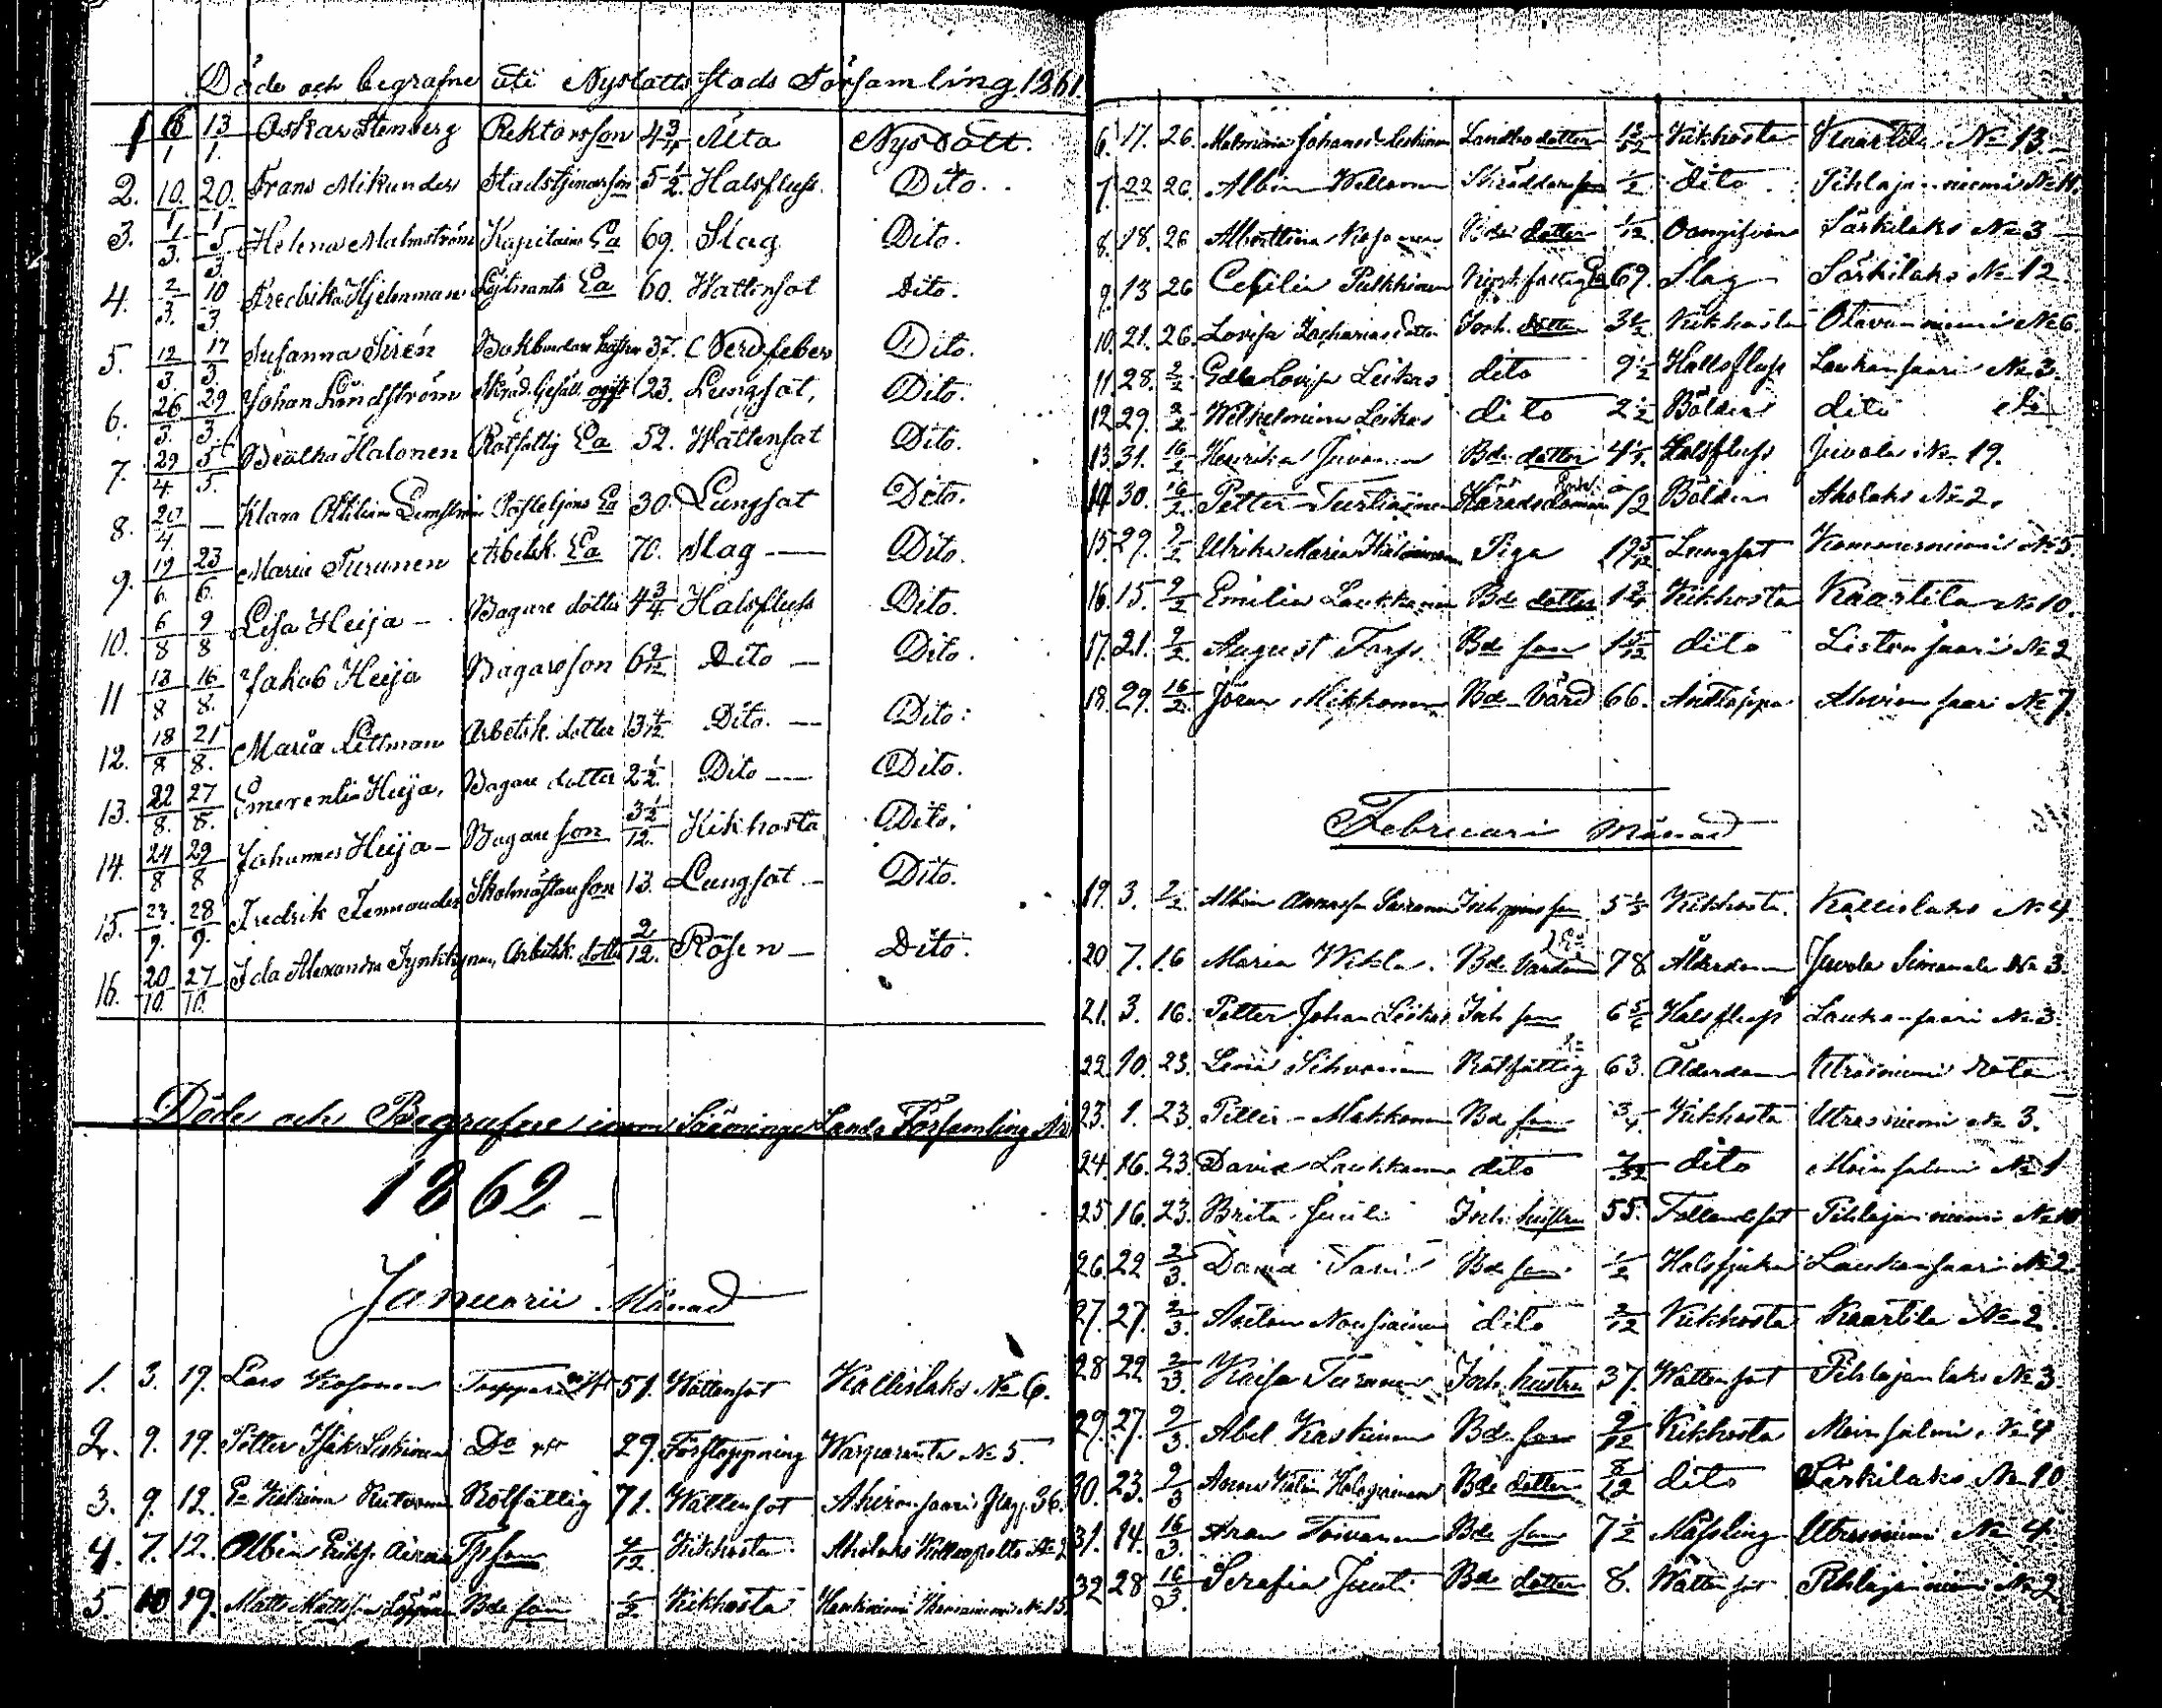 Döde och begrafne uti Nyslotts Stads Församling 1861.
1 8/1 13/1. Oskar Stenberg Rektorsson 4 3/4 Älta Nyslott.
2. 10/1 20/1 Frans Mikander Stadstjenareson 5 1/2. Halsfluss Dito.
3. 1/3. 5/3 Helena Malmström Kapitains Ea 69. Slag Dito.
4. 2/3. 10/3 Fredrika Hjelmman Löjtnants Ea 60. Wattensot Dito.
5. 12/3. 17/3 Susanna Sirén Bokbindare hustru 37. Nervfeber Dito.
6. 26/3. 29/3 Johan Lindström Skräd. Gesäll ogift 23. Lungsot, Dito.
7. 29/4. 5/5. Beatha Halonen Rotfattig Ea 52. Wattensot Dito.
8. 20/4. — Klara Ottiliana 30. Lungsot Dito.
9. 19/6. 23/6. Maria Turunen Arbetsk. Ea 70. Slag — Dito.
10. 6/8 9/8 Lisa Heija — Bagare dotter 4 3/4 Halsfluss Dito.
11 13/8 16/8. Jakob Heija Bagaresson 6 9/12 Dito — Dito.
12. 18/8 21/8. Maria Littman Arbetsk. dotter 13 4/12 Dito. — Dito.
13. 22/8. 27/8. Emerentia Heija, Bagare dotter 2 1/2. Dito — Dito.
14. 24/8 29/8 Johannes Heija — Bagare son 3 1/2/12. Kikhosta Dito.
15. 23/9. 28/9. Fredrik Fennander Skolmästare son 13. Lungsot — Dito.
16. 20/10. 27/10. Ida Alexandra Tynkkynen, Arbetsk. dotter 2/12. Rosen — Dito.
Döde och Begrafne inom Sääminge Lands Församling År
1862 —
Januarii Månad
1. 3. 19. Lars Kosonen 51. Wattensot Kallislaks No 6.
2. 9. 19. Petter Do 29. Förstoppning Warparanta No 5
3. 9. 12. Rotfattig 71. Wattensot Ahvionsaari 36.
4. 7. 12. Albin son 4/12 Kikhosta Aholaks No 2
5. 10 19. Matts Mattsson Bde son 1/2. Kikhosta No 15.
6. 17. 26. Landbo dotter Kikhosta Kaartila No 13.
7. 22 26. Albin Skräddareson 1/2 dito Pihlajaniemi
8. 18. 26 Albertina Kosonen Bde dotter 1/12. Oangifven Särkilaks No 3
9. 13 26 Cesilia Pulkkinen 69. Slag Särkilaks No 12.
10. 21. 26. Lovisa Zachariasdotter Inh. dotter 3 1/2. Kikhosta Otavaniemi No 6.
11. 28. 2/2. Edla Lovisa Leikas dito 9 1/2 Halsfluss Laukansaari No 3.
12 29. 2/2 Wilhelmina Leikas dito 2 1/2 Bölder dito
13. 31. 16/2 Henrika Juvonen Bde dotter Halsfluss Juvola No 19.
14 30. 16/2. Petter Turtiainen Bölder Aholaks No 2.
15. 29. 2/2 Ulrika Maria Piga 19 Lungsot Kommerniemi No 5
16. 15. 2/2 Emilia Laukkanen Bde dotter 1 3/4 Kikhosta Kaartila No 10.
17. 21. 2/2. August Bde son dito Liistonsaari No 2
18. 29. 16/2. Jöran Mikkonen Bde Värd 66. Andtäppa Ahvionsaari No 7.
Februari Månad
19. 3. 2/2. Albin Kikhosta. Kallislaks No 4
20 7. 16 Maria Bde 78 Ålderdom Juvola Simanala No 3.
21. 3. 16. Petter Johan Leikas Inh son 6 5/6 Halsfluss Laukansaari No 3.
22. 10. 23. Lena Sihvonen Rotfattig 63. Ålderdom Utrasniemi
23. 1. 23. Petter Makkonen Bde son 3/4 Kikhosta Utrasniemi No 3.
24. 16. 23. David Laukkanen dito dito Moinsalmi No 1
25. 16. 23. Brita Juuti Inh. hustru 55. Fallandesot Pihlajaniemi
26. 22 2/3. David Bde son 1/2 Halssjuka Laukansaari No 2.
27. 27. 2/3. Anton Nousiainen dito 2/12 Kikhosta Kaartila No 2.
28 22 2/3. Kaisa Turunen Inh. hustru 37. Wattensot Pihlajanlaks No 3.
29. 27. 2/3. Abel Kaskinen Bde son 9/12 Kikhosta Moinsalmi No 4
30. 23. 2/3 Anna Bde dotter 8/12 dito Särkilaks No 10
31. 14. 16/3. Aron Toivanen Bde son 7 1/2 Mässling Utrasniemi No 4.
32 28 16/3. Serafia Juuti Bde dotter 8. Wattensot Pihlajaniemi No 2